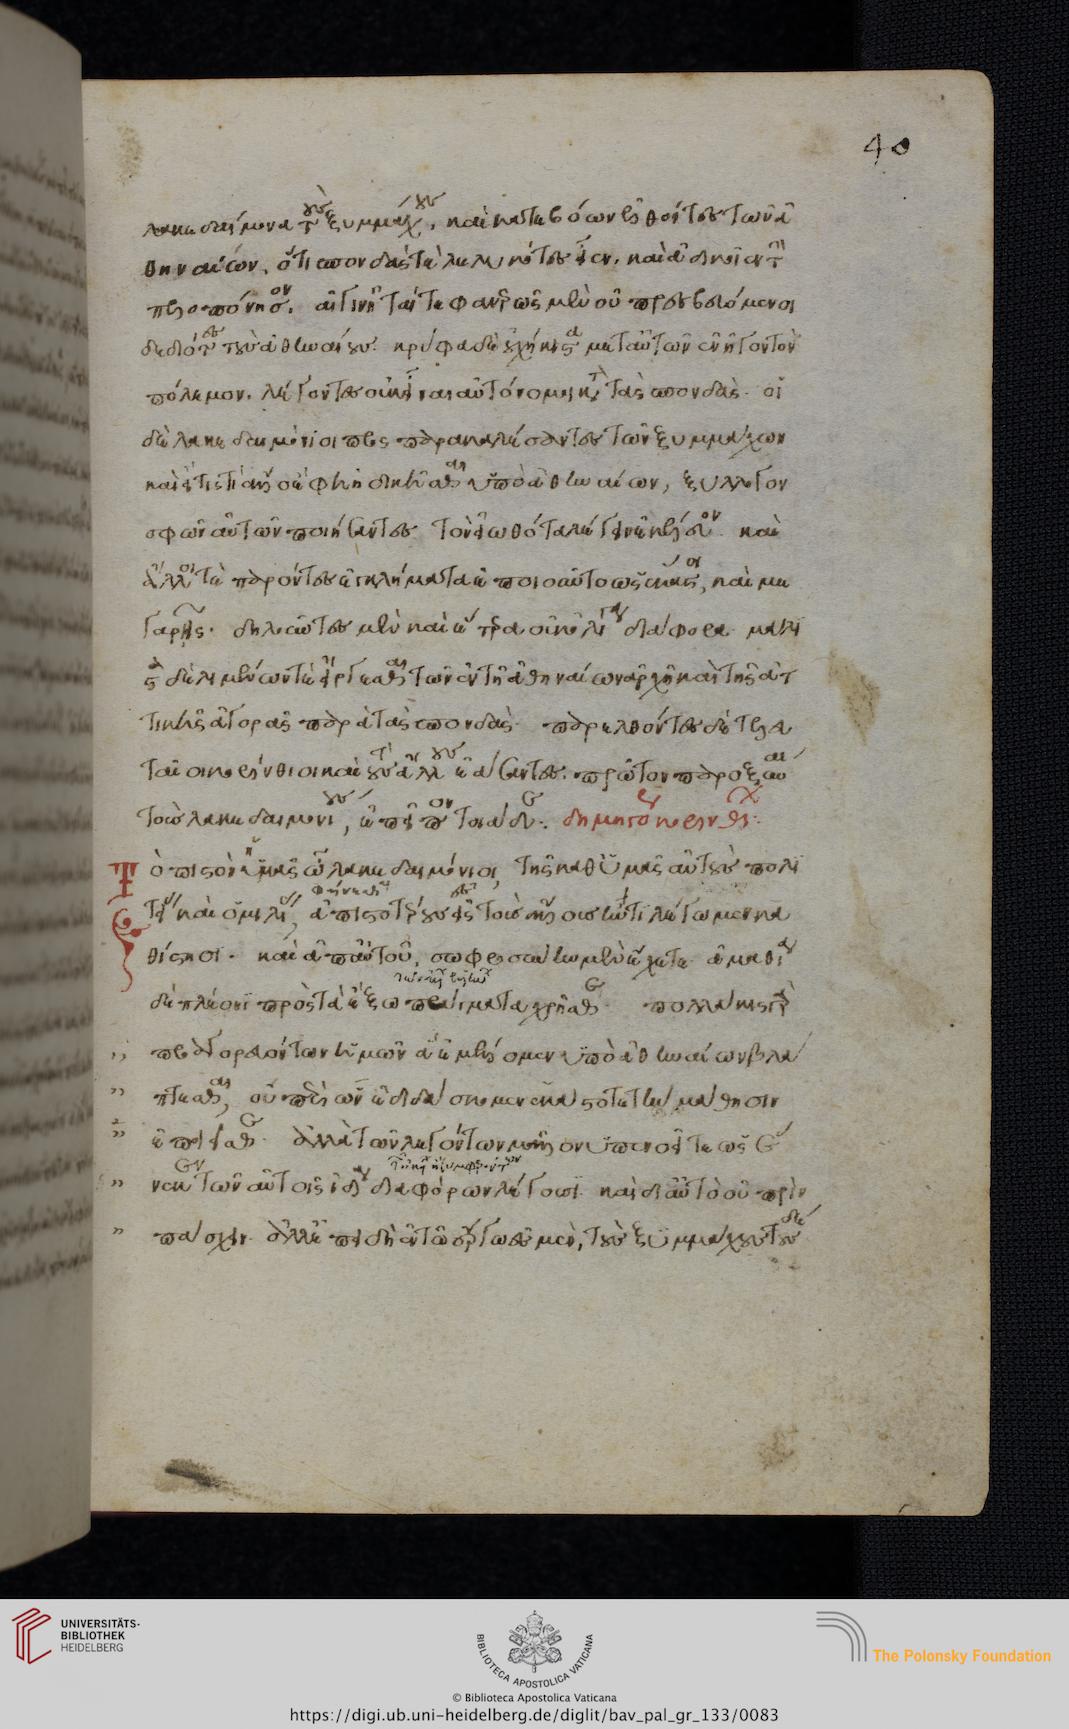 40
λακεδαίμονα τοὺς ξυμμάχους, καὶ κατεβόων ἐλθόντες τῶν ἀ
θηναίων, ὅτι σπονδάς τε λελυκότες εἶεν, καὶ ἀδικοῖεν τὴν
πελοπόννησον. αἰγινῆταί τε φανερῶς μὲν οὐ πρεσβευόμενοι
δεδιότες τοὺς ἀθηναίους. κρύφα δὲ οὐχ ἥκιστα μετ αὐτῶν ἐνῆγον τὸν
πόλεμον. λέγοντες οὐκ εἶναι αὐτόνομοι κατὰ τὰς σπονδάς. οἱ
δὲ λακεδαιμόνιοι προσπαρακαλέσαντες τῶν ξυμμάχων
καὶ εἴ τίς τι ἄλλο ἔφη ἠδικῆσθαι ὑπὸ ἀθηναίων, ξύλλογον
σφῶν αὐτῶν ποιήσαντες τὸν εἰωθότα λέγειν ἐκέλευον. καὶ
ἄλλοι τε παρόντες ἐγκλήματα ἐποιοῦντο ὡς ἕκαστοι, καὶ με
γαρῆς. δηλοῦντες μὲν καὶ ἕτερα οὐκ ὀλίγα διάφορα. μάλι
στα δὲ λιμένων τε εἴργεσθαι τῶν ἐν τῆ ἀθηναίων ἀρχῆ καὶ τῆς ἀτ
τικῆς ἀγορᾶς παρὰ τὰς σπονδάς. παρελθόντες δὲ τελευ
ταῖοι κορίνθιοι καὶ τοὺς ἄλλους ἐάσαντες πρῶτον παροξῦναι
τοὺς λακεδαιμονίους, ἐπεῖπον τοιάδε.
ὸ πιστὸν ὑμᾶς ὦ λακεδαιμόνιοι, τῆς καθ ὑμᾶς αὐτοὺς πολι
τείας καὶ ὁμιλίας, ἀπιστοτέρους εἰς τοὺς ἄλλους ἤν τι λέγωμεν κα
θίστησι. καὶ ἀπ αὐτοῦ, σωφροσύνην μὲν ἔχετε. ἀμαθίᾳ
δὲ πλέονι πρὸς τὰ ἔξω πράγματα χρῆσθε. πολλάκις γὰρ
προαγορευόντων ἡμῶν ἃ ἐμέλλομεν ὑπὸ ἀθηναίων βλά
πτεσθαι, οὐ περὶ ὧν ἐδιδάσκομεν ἑκάστοτε τὴν μάθησιν
ἐποιεῖσθε. ἀλλὰ τῶν λεγόντων μᾶλλον ὑπενοεῖτε ὡς ἕ
νεκα τῶν αὐτοῖς ἰδίᾳ διαφόρων λέγουσι. καὶ δι αὐτὸ οὐ πρὶν
πάσχειν. ἀλλ ἐπειδὴ ἐν τῶ ἔργω ἐσμέν, τοὺς ξυμμάχους τούσδε
UNIVERSITÄTS-
BIBLIOTHEK
HEIDELBERG
BIBLIOTECA APOSTOLICA VATICANA
The Polonsky Foundation
© Biblioteca Apostolica Vaticana
https://digi.ub.uni-heidelberg.de/diglit/bav_pal_gr_133/0083